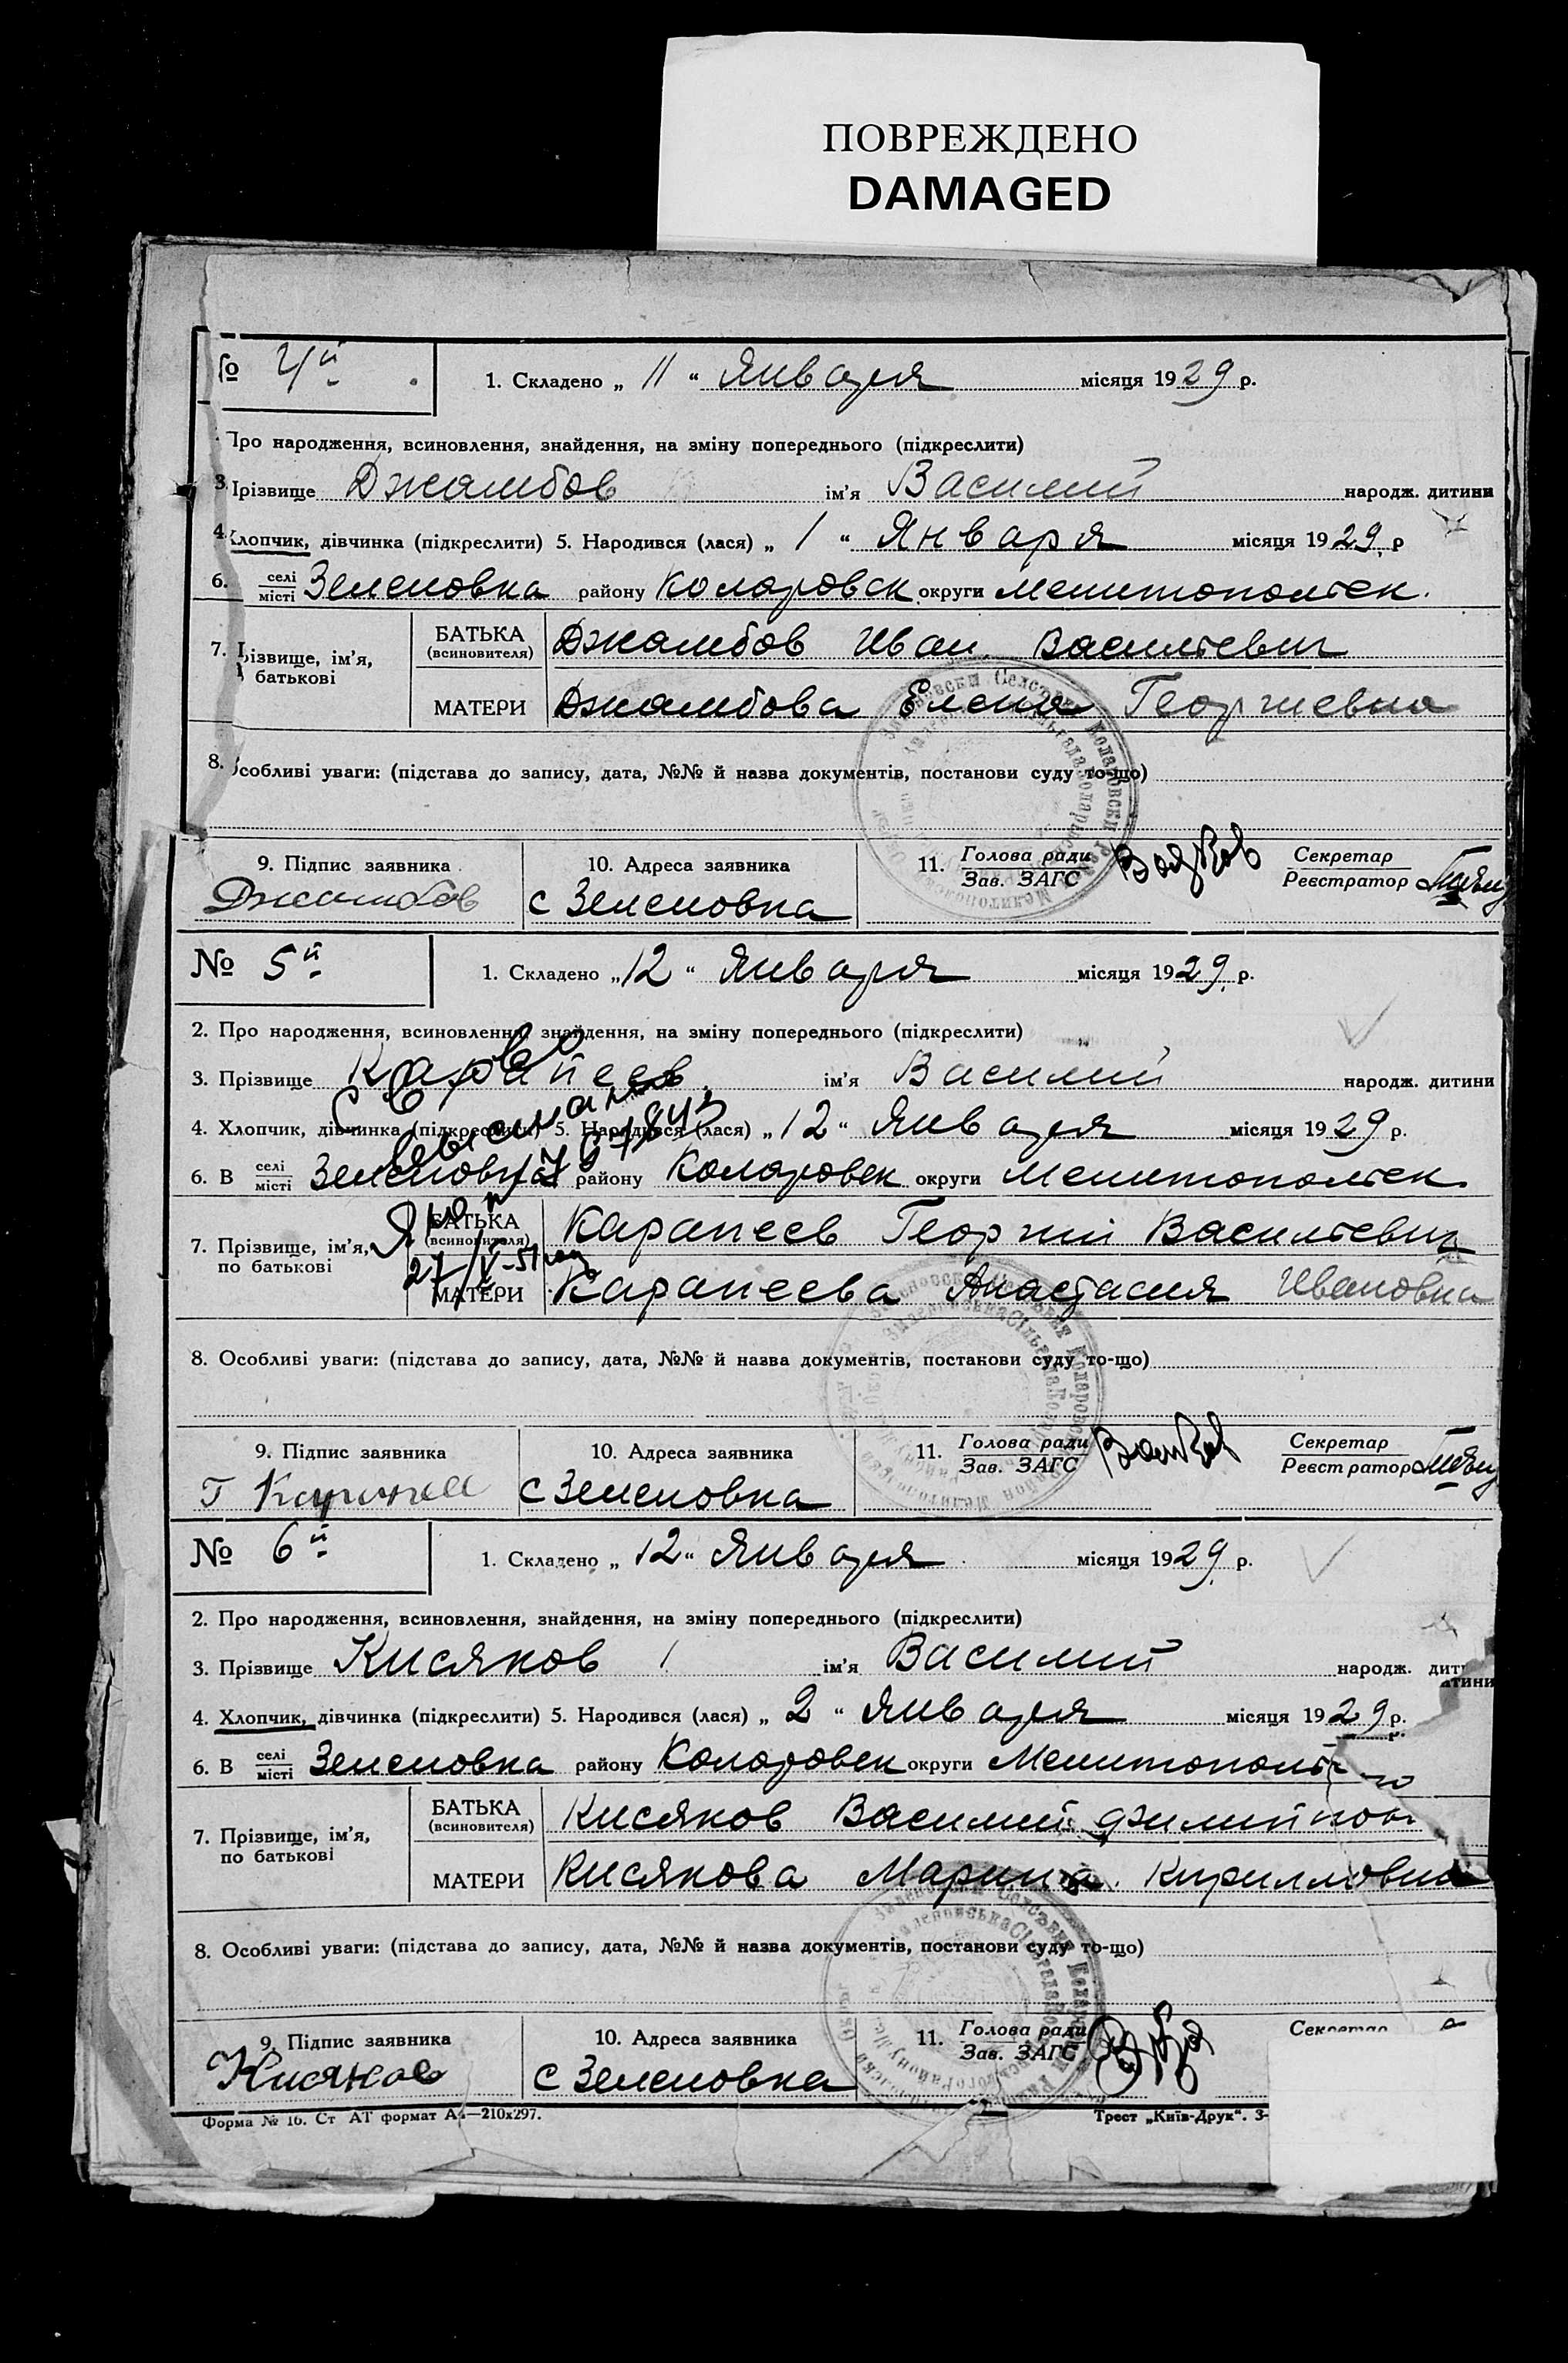 ПОВРЕЖДЕНО
DAMAGED
№ 4й 1. Складено „ 11 “ Января місяця 1929 р.
Про народження, всиновлення, знайдення, на зміну попереднього (підкреслити)
3. Прізвище Джамбов ім’я Василий народж. дитини
4. Хлопчик, дівчинка (підкреслити) 5. Народився (лася) „ 1 “ Января місяця 1929 р
6. селі місті Зеленовка району Коларовск округи Мелитопольск.
7. Прізвище, ім’я, батькові БАТЬКА (всиновителя) Джамбов Иван Васильевич
МАТЕРИ Джамбова Елена Георгиевна
8. Особливі уваги: (підстава до запису, дата, №№ й назва документів, постанови суду то-що)
9. Підпис заявника 10. Адреса заявника 11. Голова ради Зав. ЗАГС Секретар Реєстратор
Джамбов с Зеленовка
№ 5й 1. Складено „ 12 “ Января місяця 1929 р.
2. Про народження, всиновлення, знайдення, на зміну попереднього (підкреслити)
3. Прізвище Карапеев ім’я Василий народж. дитини
4. Хлопчик, дівчинка (підкреслити) 5. Народився (лася) „ 12 “ Января місяця 1929 р.
6. В селі місті Зеленовка району Коларовск округи Мелитопольск.
7. Прізвище, ім’я, по батькові БАТЬКА (всиновителя) Карапеев Георгий Васильевич
МАТЕРИ Карапеева Анастасия Ивановна
27/V-51
8. Особливі уваги: (підстава до запису, дата, №№ й назва документів, постанови суду то-що)
9. Підпис заявника 10. Адреса заявника 11. Голова ради Зав. ЗАГС Секретар Реєстратор
с Зеленовка
№ 6й 1. Складено „ 12 “ Января місяця 1929 р.
2. Про народження, всиновлення, знайдення, на зміну попереднього (підкреслити)
3. Прізвище Кисяков ім’я Василий народж. дитини
4. Хлопчик, дівчинка (підкреслити) 5. Народився (лася) „ 2 “ Января місяця 1929 р.
6. В селі місті Зеленовка району Коларовск округи Мелитопольс
7. Прізвище, ім’я, по батькові БАТЬКА (всиновителя) Кисяков Василий
МАТЕРИ Кисякова Марина Кирилловна
8. Особливі уваги: (підстава до запису, дата, №№ й назва документів, постанови суду то-що)
9. Підпис заявника 10. Адреса заявника 11. Голова ради Зав. ЗАГС Секретар
Кисяков с Зеленовка
Форма № 16. Ст АТ формат А4—210x297. Трест „Київ-Друк“. З-